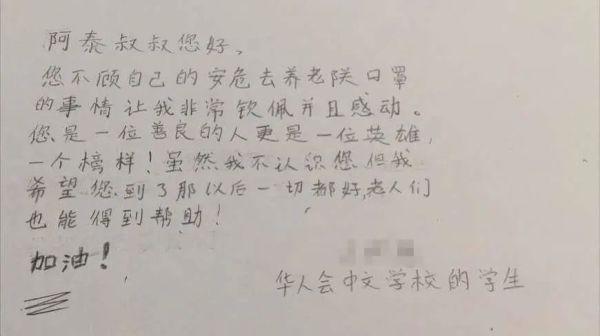 阿泰叔叔您好,
您不顾自己的安危去养老院口罩
的事情让我非常钦佩并且感动。
您是一位善良的人更是一位英雄,
一个榜样!虽然我不认识您但我
希望您到了那以后一切都好,老人们
也能得到帮助!
加油!
华人会中文学校的学生